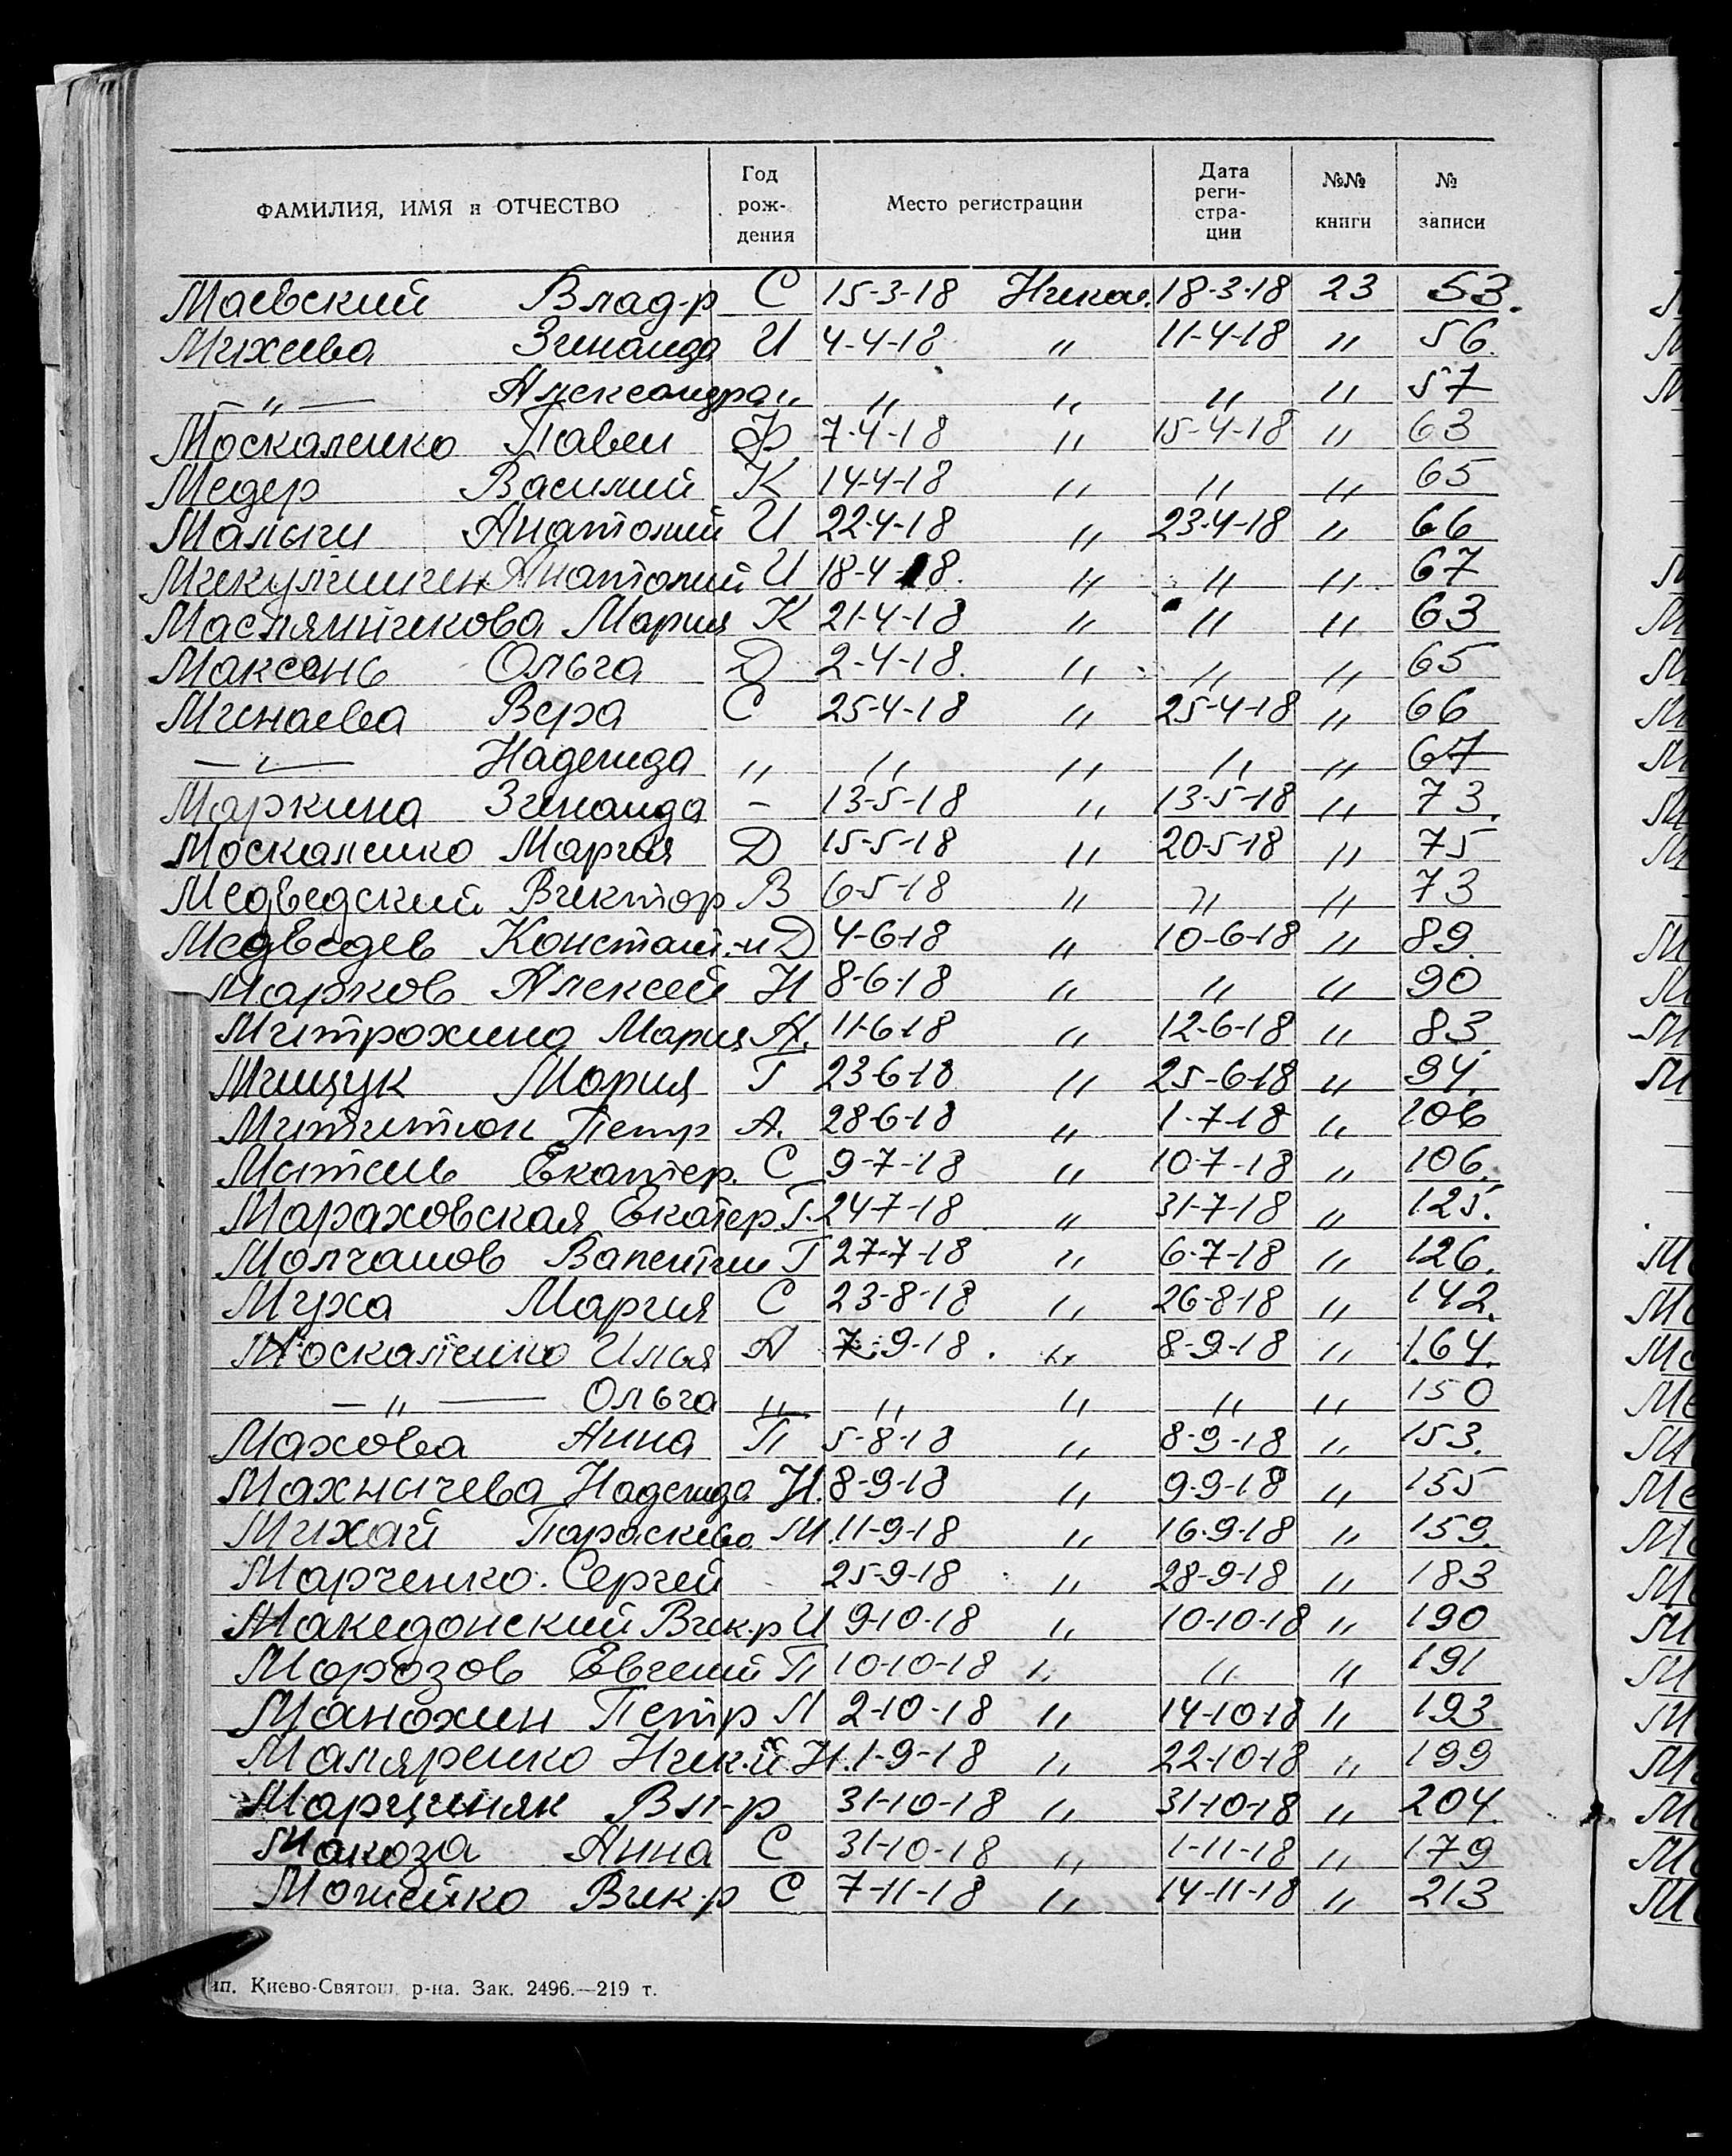 ФАМИЛИЯ, ИМЯ и ОТЧЕСТВО Год рож- дения Место регистрации Дата реги- стра- ции №№ книги № записи
Маевский Влад-р С 15-3-18 Никол. 18-3-18 23 53.
Михеева Зинаида И 4-4-18 " 11-4-18 " 56.
— " — Александра " " " " " 57
Москаленко Павел Ф 7-4-18 " 15-4-18 " 63
Медер Василий К 14-4-18 " " " 65
Малыги Анатолий И 22-4-18 " 23-4-18 " 66
Микулишин Анатолий И 18-4-18. " " " 67
Маслянникова Мария К 21-4-18 " " " 63
Максень Ольга Д 2-4-18. " " " 65
Минаева Вера С 25-4-18 " 25-4-18 " 66
— " — Надежда " " " " " 67
Маркина Зинаида - 13-5-18 " 13-5-18 " 73.
Москаленко Мария Д 15-5-18 " 20-5-18 " 75
Медведский Виктор В 6-5-18 " " " 73
Медведев Констант-н Д 4-6-18 " 10-6-18 " 89.
Марков Алексей Н 8-6-18 " " " 90
Митрохина Мария А. 11-6-18 " 12-6-18 " 83
Мищук Мария Г 23-6-18 " 25-6-18 " 94.
Петр А. 28-6-18 " 1-7-18 " 106
Екатер. С 9-7-18 " 10-7-18 " 106.
Мараховская Екатер Г. 24-7-18 " 31-7-18 " 125.
Молчанов Валентин Г 27-7-18 " 6-7-18 " 126.
Муха Мария С 23-8-18 " 26-8-18 " 142.
Москаленко Илья А 7-9-18. " 8-9-18 " 164.
— " — Ольга " " " " " 150
Махова Анна П 5-8-18 " 8-9-18 " 153.
Махнычева Надежда Н. 8-9-18 " 9-9-18 " 155
Михай Параскева М. 11-9-18 " 16-9-18 " 159.
Марченко. Сергей 25-9-18 " 28-9-18 " 183
Македонский Вик-р И 9-10-18 " 10-10-18 " 190
Морозов Евгений П 10-10-18 " " " 191
Манохин Петр Л 2-10-18 " 14-10-18 " 193
Маляренко Ник-й Н. 1-9-18 " 22-10-18 " 199
Марциняк Вл-р 31-10-18 " 31-10-18 " 204.
Макоза Анна С 31-10-18 " 1-11-18 " 179
Можейко Вик-р С 7-11-18 " 14-11-18 " 213
ип. Киево-Святош. р-на. Зак. 2496.—219 т.